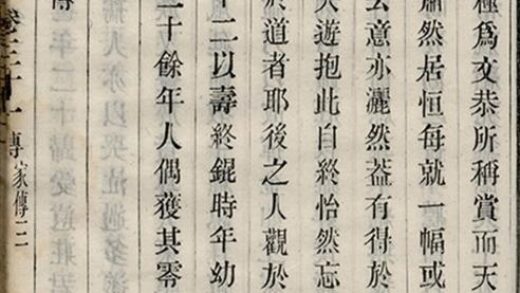 種為文恭所稱賞而天
蕭然居恒每就一幅或
去意亦灑然葢有得於
大遊抱此自終怡然忘
於道者耶後之人觀於
十二以壽終錕時年幼
二十餘年人偶獲其零
傳
卷二十一 傳 家傳三